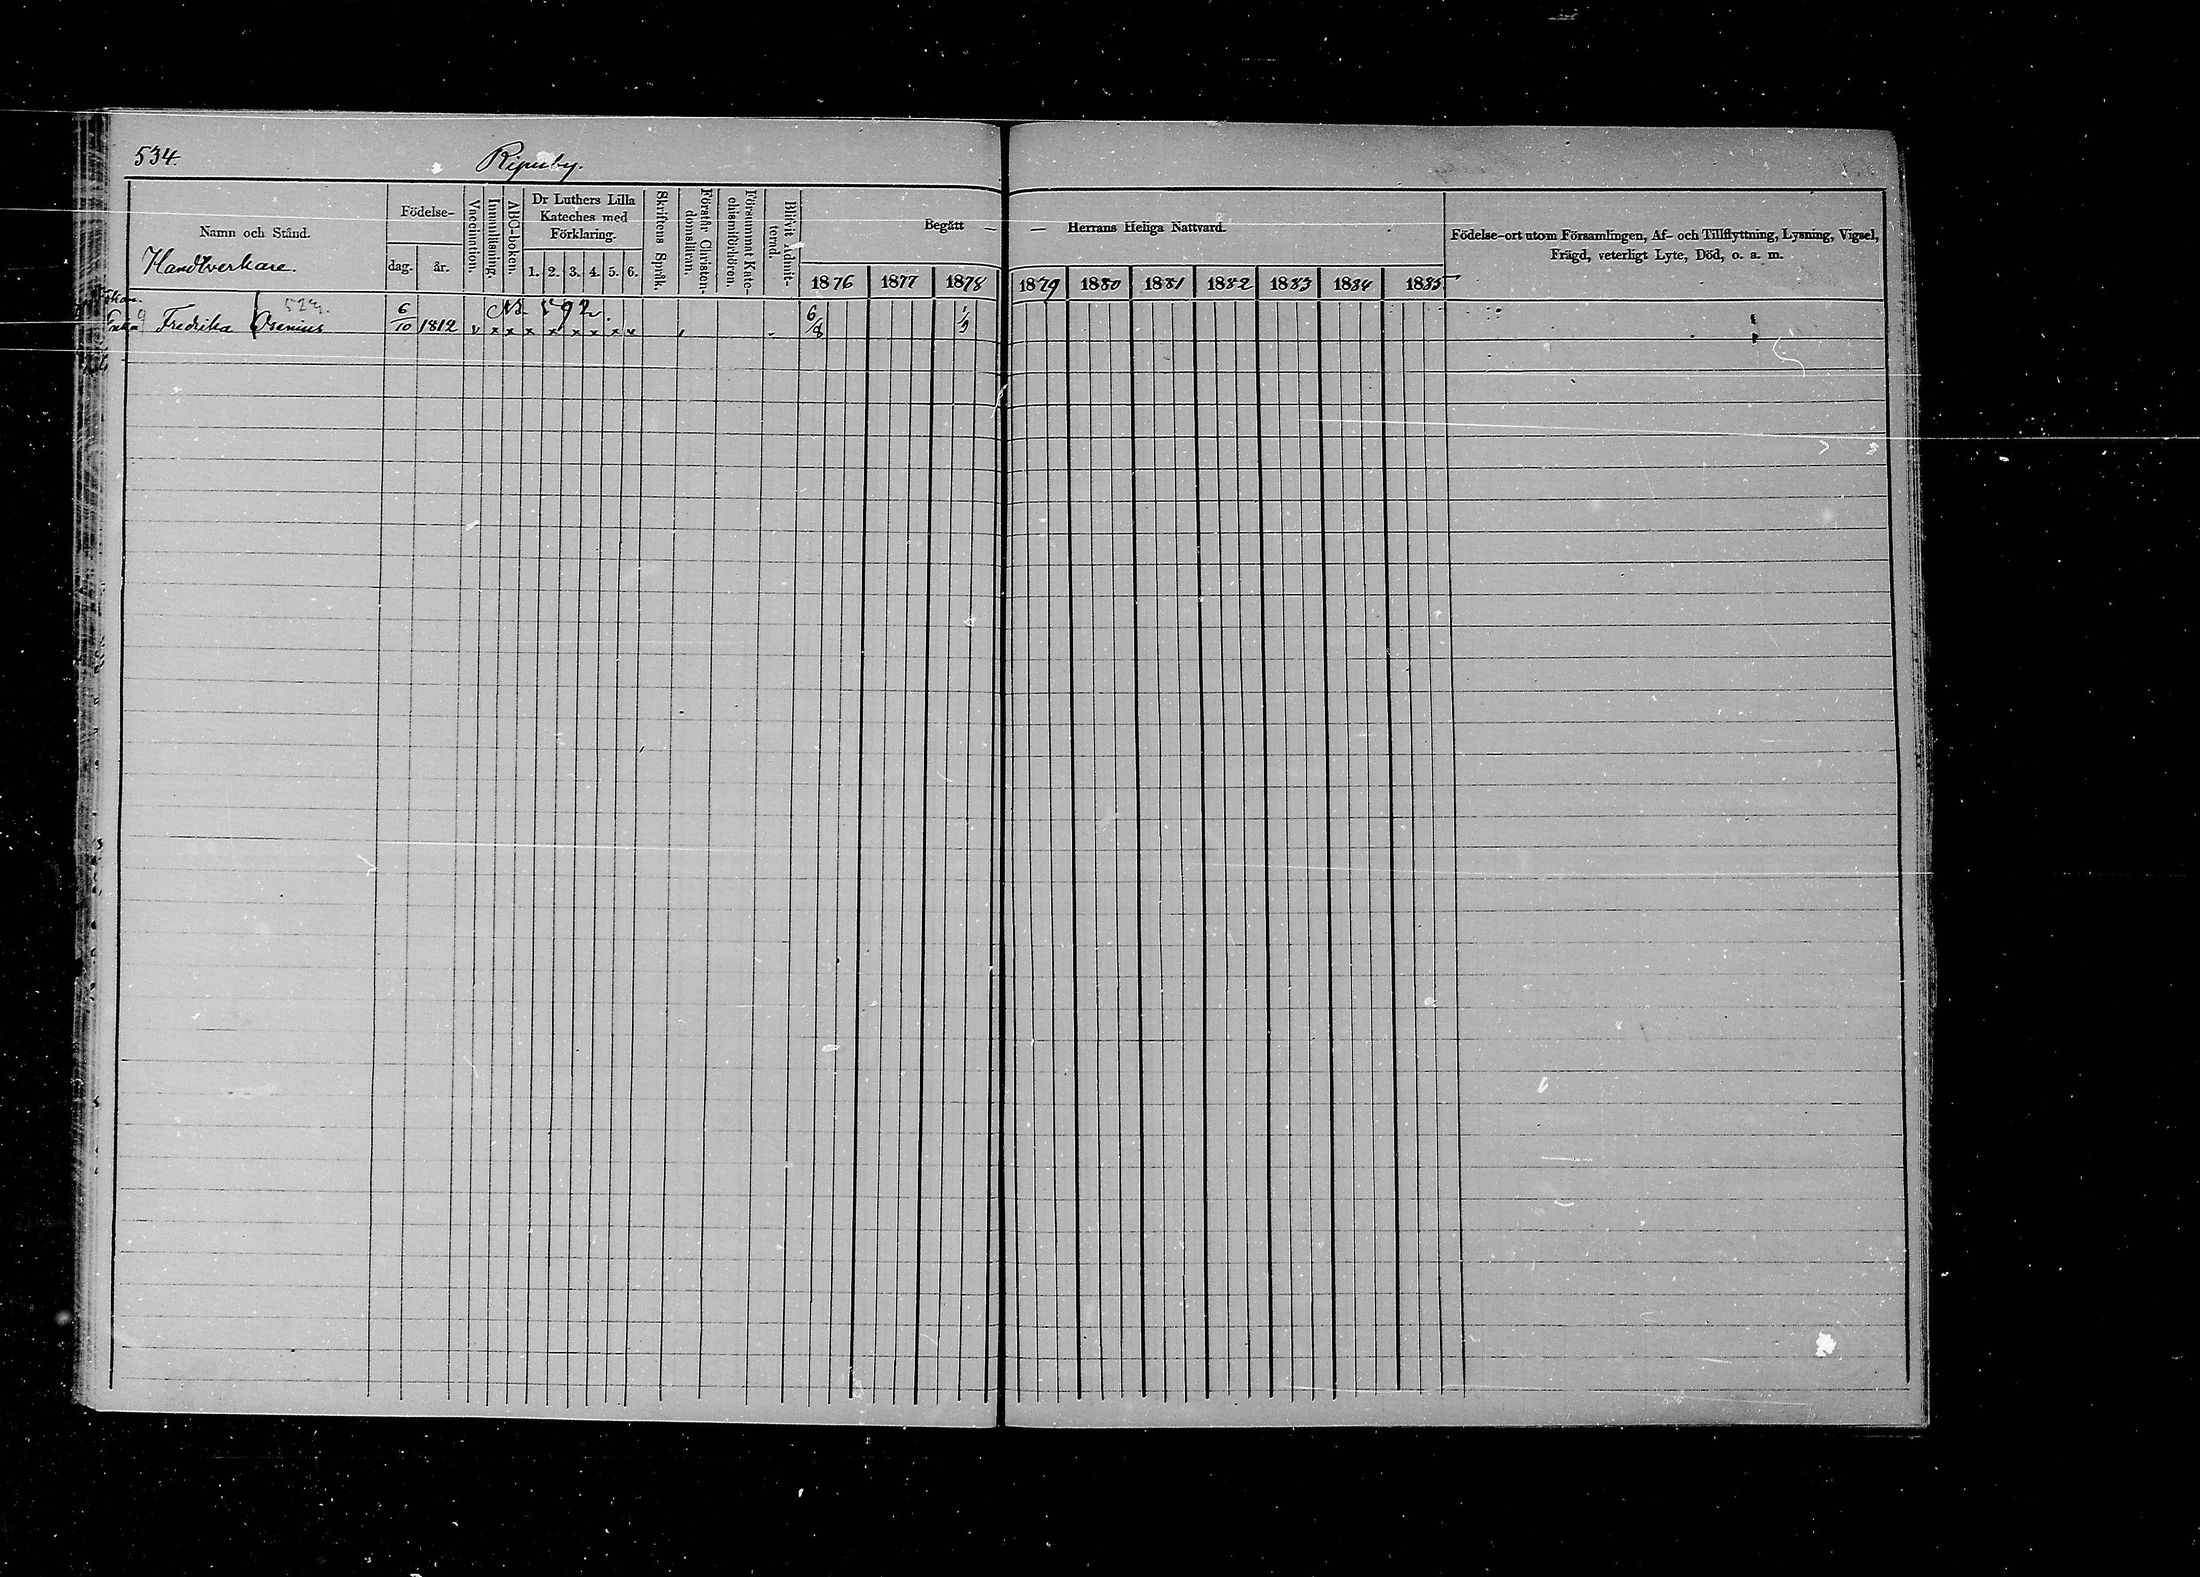 534.
Ripuby.
Namn och Stånd.
Handtverkare.
Födelse-
dag. år.
Vaccination.
Innanläsning.
ABC-boken.
Dr Luthers Lilla
Kateches med
Förklaring.
1. 2. 3. 4. 5. 6.
Skriftens Språk.
Förstår Christen-
domsläran.
Försummat Kate-
chismiförhören.
Blifvit Admit-
terad.
Begått — — Herrans Heliga Nattvard.
1876 1877 1878 1879 1880 1881 1882 1883 1884 1885
Födelse-ort utom Församlingen, Af- och Tillflyttning, Lysning, Vigsel,
Frägd, veterligt Lyte, Död, o. a. m.
592.
Enka Fredrika Osenius 6/10 1812 v x x x x x x x x 6/8 1/9